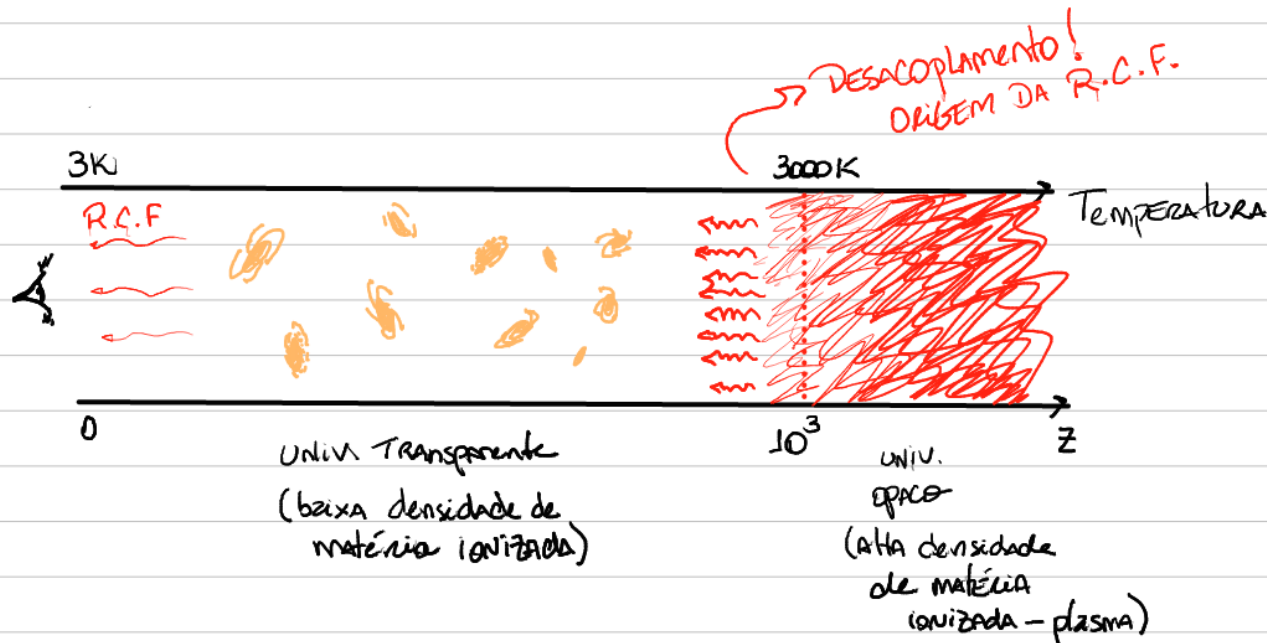 DESACOPLAMENTO!
ORIGEM DA R.C.F.
3K
3000K
TEMPERATURA
R.C.F
0
10³
Z
UNIV. TRANSPARENTE
(baixa densidade de
matéria IONIZADA)
UNIV.
OPACO
(AltA densidade
de matéria
IONIZADA - plasma)